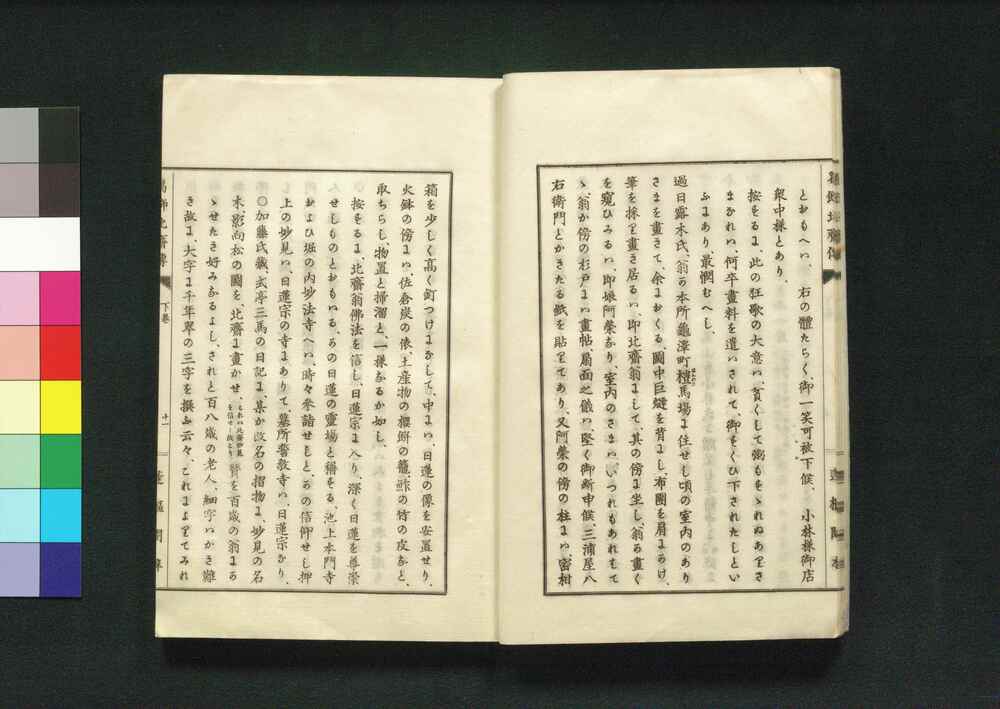 とおもへバ、右の體たらく御一笑可被下候、小林様御店
衆中様とあり、
按ずるよ、此の狂歌の大意ハ、貧くして粥もすゝれぬありさ
まなれバ、何卒畫料を遣ハされて、御すくひ下されたしとい
ふよあり最憫むべし、
過日露木氏、翁が本所龜澤町榿馬場よ住せし頃の室内のあり
さまを畫きて、余よおくる、圖中巨燵を背よし、布團を肩よかけ、
筆を採りて畫き居るハ、即北齋翁よして、其の傍よ坐し、翁が畫く
を窺ひみるハ、即娘阿榮なり、室内のさまハ、いづれもあれはて
ゝ、翁が傍の杉戸よハ、畫帖、扇面之儀ハ、堅く御断申候、三浦屋八
右衛門とかきたる紙を貼りてあり、又阿榮の傍の柱よハ、蜜柑
箱を少しく高く釘つけよなして、中よハ、日蓮の像を安置せり、
火鉢の傍よハ、佐倉炭の俵、土産物の櫻餅の籠、鮓の竹の皮など、
取ちらし、物置と掃溜と、一様なるが如し、
按ずるよ、北齋翁佛法を信じ、日蓮宗よ入り、深く日蓮を尊崇
せしものとおもハる、かの日蓮の靈場と稱する、池上本門寺
およびひ堀の内妙法寺へハ、時々參詣せしと、かの信仰せし押
上の妙見ハ、日蓮宗の寺よありて、墓所誓教寺ハ、日蓮宗なり、
〇加藤氏藏、式亭三馬の日記よ、某が改名の摺物よ、妙見の名
木、影向松の圖を、北齋よ畫かせ、もれハ北齋妙見を信ぜし故なり賛を百歳の翁よか
ゝせたき好みなるよし、されど百八歳の老人、細字ハかき難
き故よ、大字よ千年翠の三字を撰ぶ云々、これよよりてみれ
下巻
十一